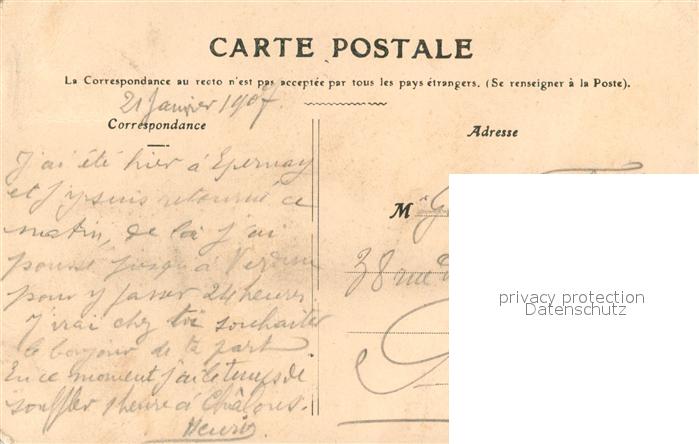 CARTE POSTALE
La Correspondance au recto n'est pas acceptée par tous les pays étrangers. (Se renseigner à la Poste).
21 Janvier 1907.
Correspondance
Adresse
J'ai été hier à Epernay
et j'y suis retourné ce
matin, de là j'ai
poussé jusqu'à Verdun
pour y passer 24 heures
J'irai chez toi souhaiter
le bonjour de ta part
En ce moment j'ai le temps de
souffler 1 heure à Châlons.
Henri
M
38 rue
privacy protection
Datenschutz